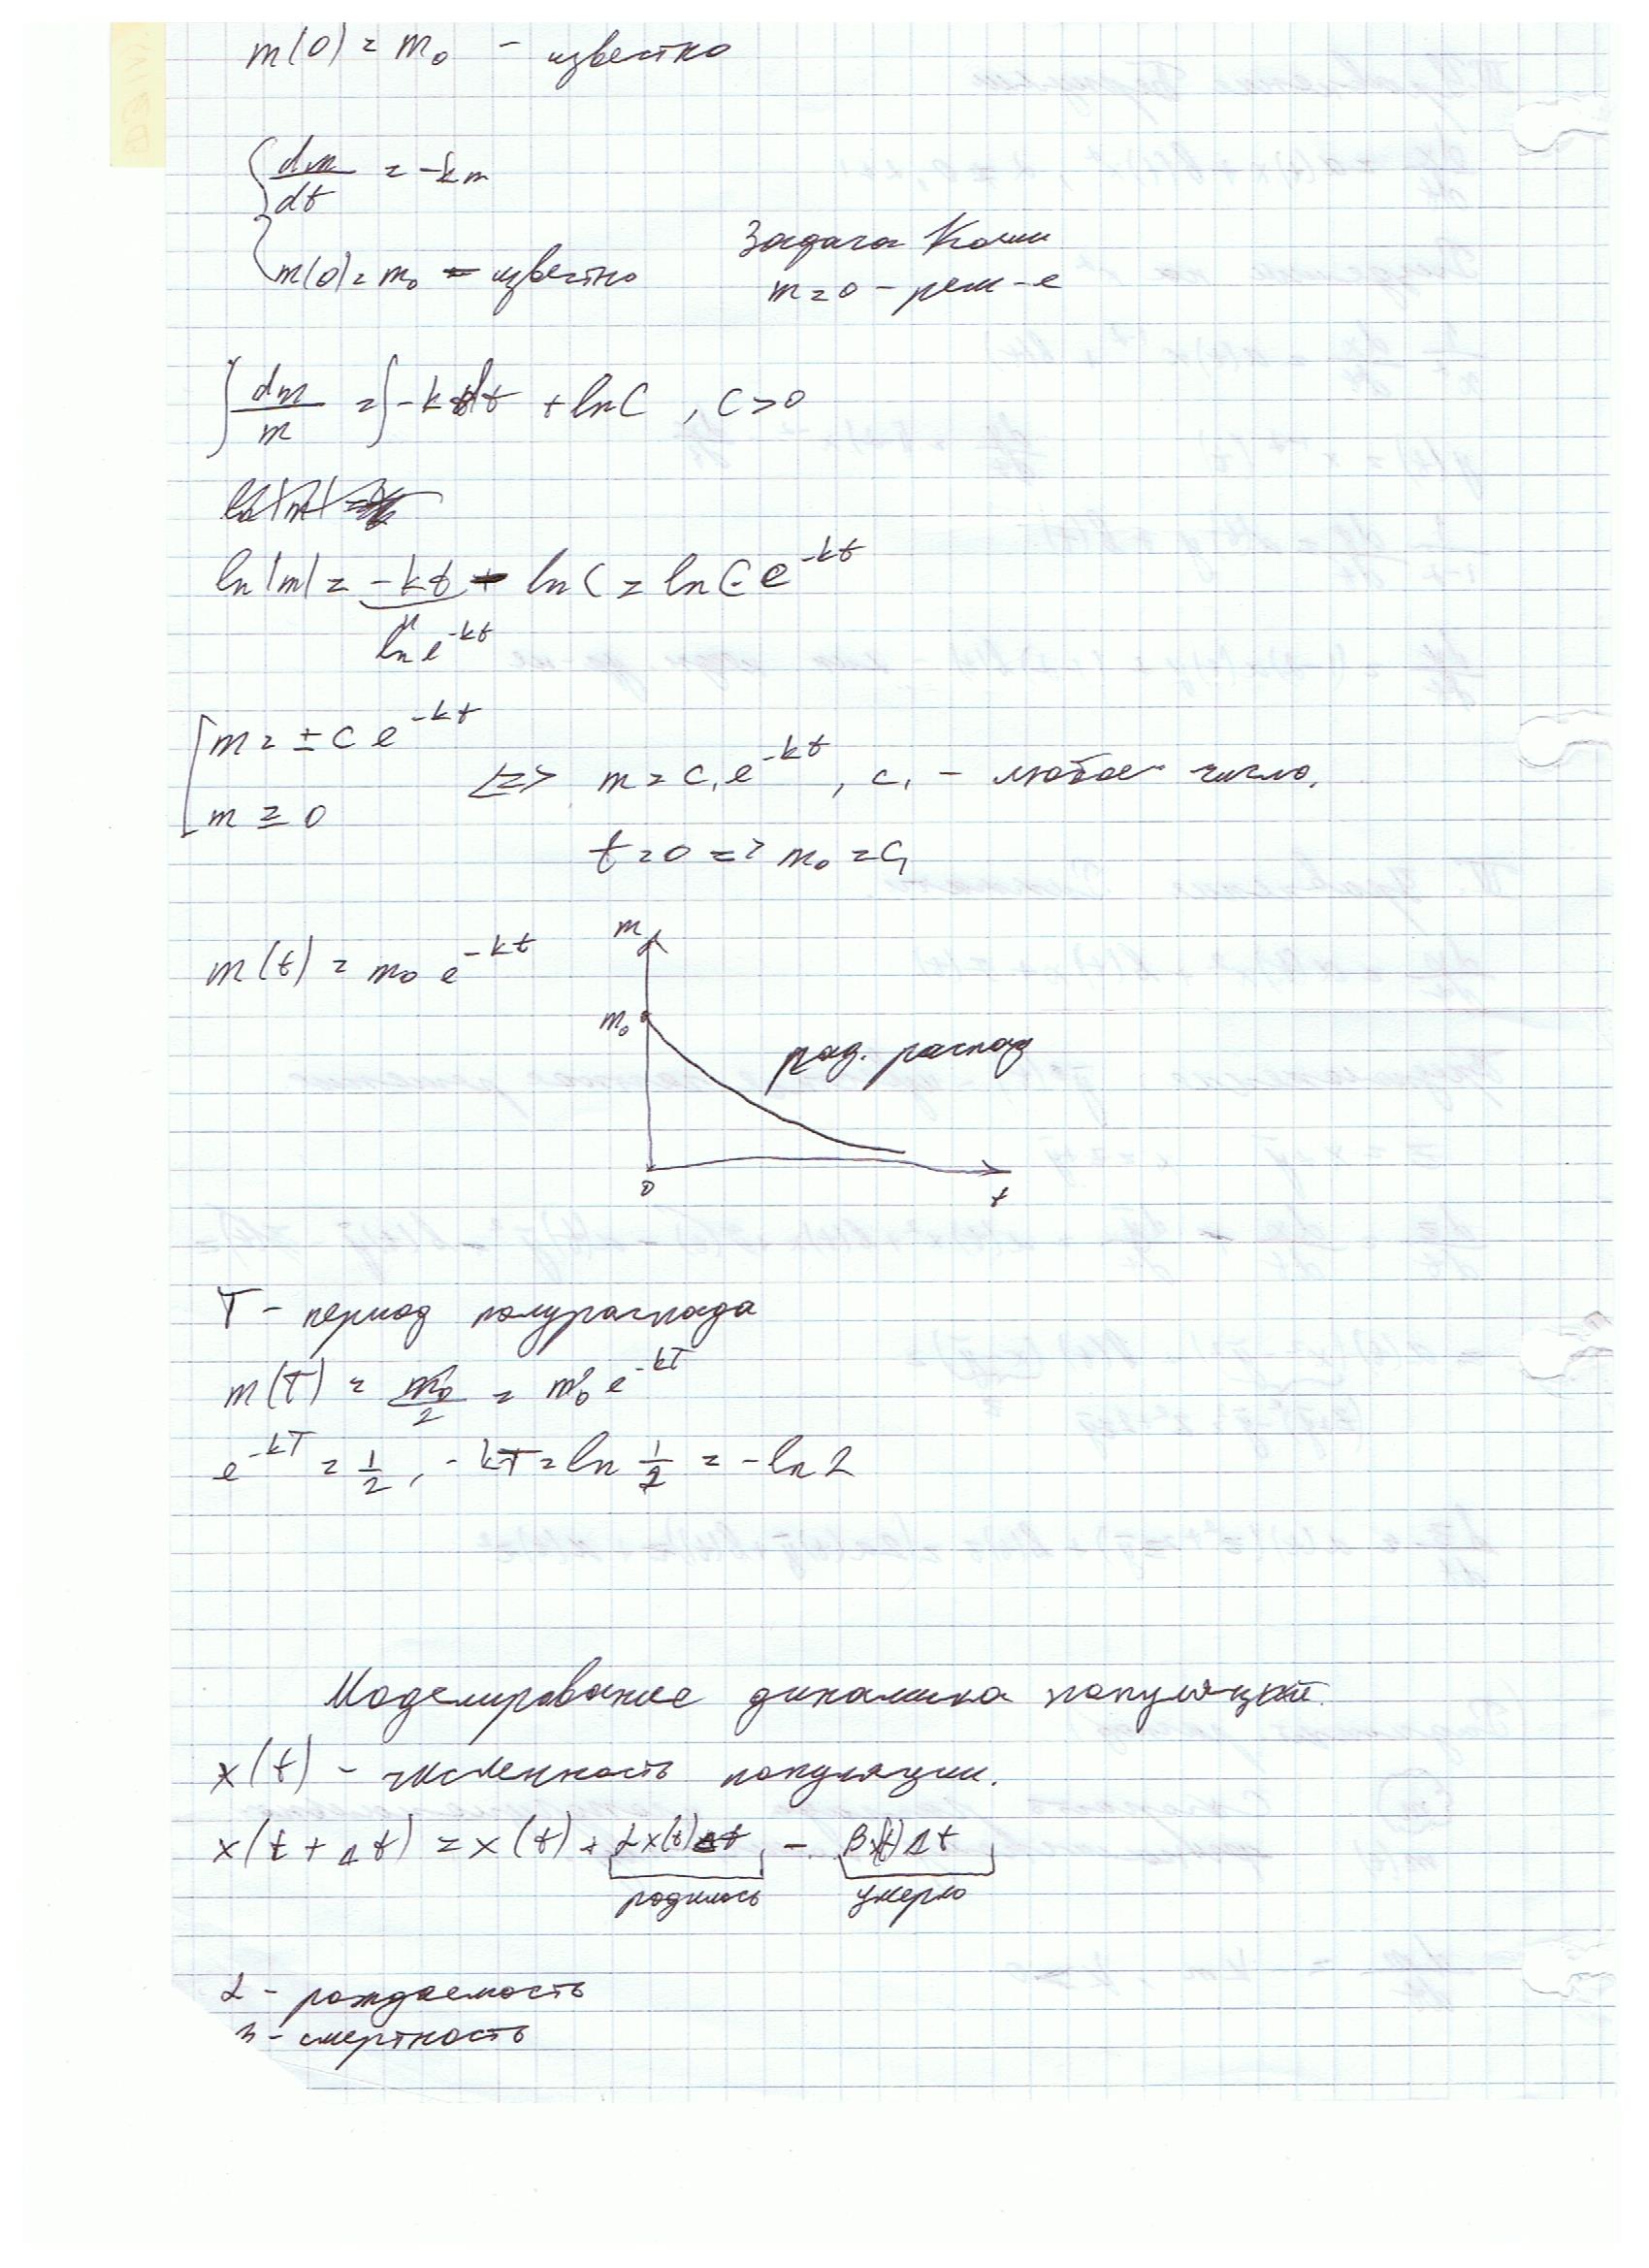 m(0) = m₀ – известно
{ dm/dt = -km
m(0) = m₀ – известно
Задача Коши
m = 0 – реш-е
∫ dm/m = ∫ -k dt + ln C , C > 0
ln |m| = -kt + ln C = ln C e^{-kt}
ln e^{-kt}
[ m = ± C e^{-kt}
m ≡ 0
<=> m = C₁ e^{-kt} , C₁ – любое число.
t = 0 => m₀ = C₁
m(t) = m₀ e^{-kt}
m
m₀
рад. распад
0
t
T – период полураспада
m(T) = m₀/2 = m₀ e^{-kT}
e^{-kT} = 1/2 , -kT = ln 1/2 = -ln 2
Моделирование динамика популяций.
x(t) – численность популяции.
x(t + Δt) = x(t) + αx(t)Δt – βx(t)Δt
родилось умерло
α – рождаемость
– смертность